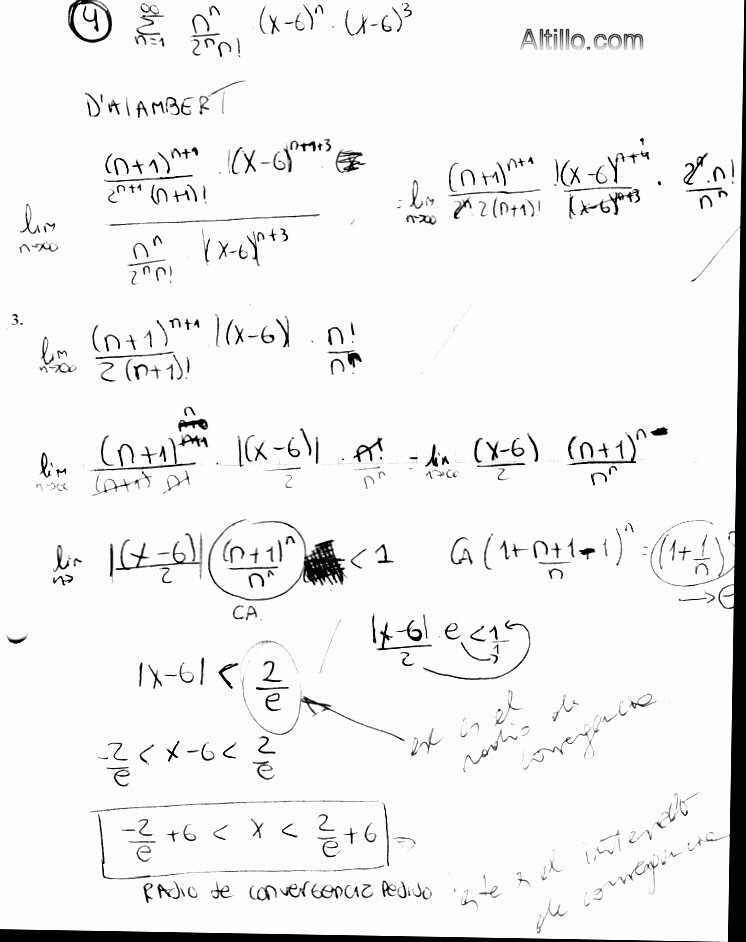 ④ ∞ Σ n=1 n^n / 2^n n! (x-6)^n · (x-6)^3
Altillo.com
D'AlAMBERT
lim n→∞ (n+1)^(n+1) / 2^(n+1) (n+1)! · |(x-6)^(n+1+3) / n^n / 2^n n! · |(x-6)|^(n+3) = lim n→∞ (n+1)^(n+1) / 2^n 2(n+1)! · |(x-6)^(n+4) / (x-6)^(n+3) · 2^n · n! / n^n
3.
lim n→∞ (n+1)^(n+1) / 2(n+1)! |(x-6)| · n! / n^n
lim n→∞ (n+1)^n / (n+1) n! · |(x-6)| / 2 · n! / n^n = lim n→∞ (x-6) / 2 (n+1)^n / n^n
lim n→ |(x-6)| / 2 (n+1)^n / n^n < 1 CA (1 + n+1-1 / n)^n = (1 + 1/n)^n
CA. → e
|x-6| / 2 e < 1 / 1
|x-6| < 2/e
este es el radio de convergencia
-2/e < x-6 < 2/e
-2/e + 6 < x < 2/e + 6 → este es el intervalo de convergencia
RADIO de convergencia Pedido